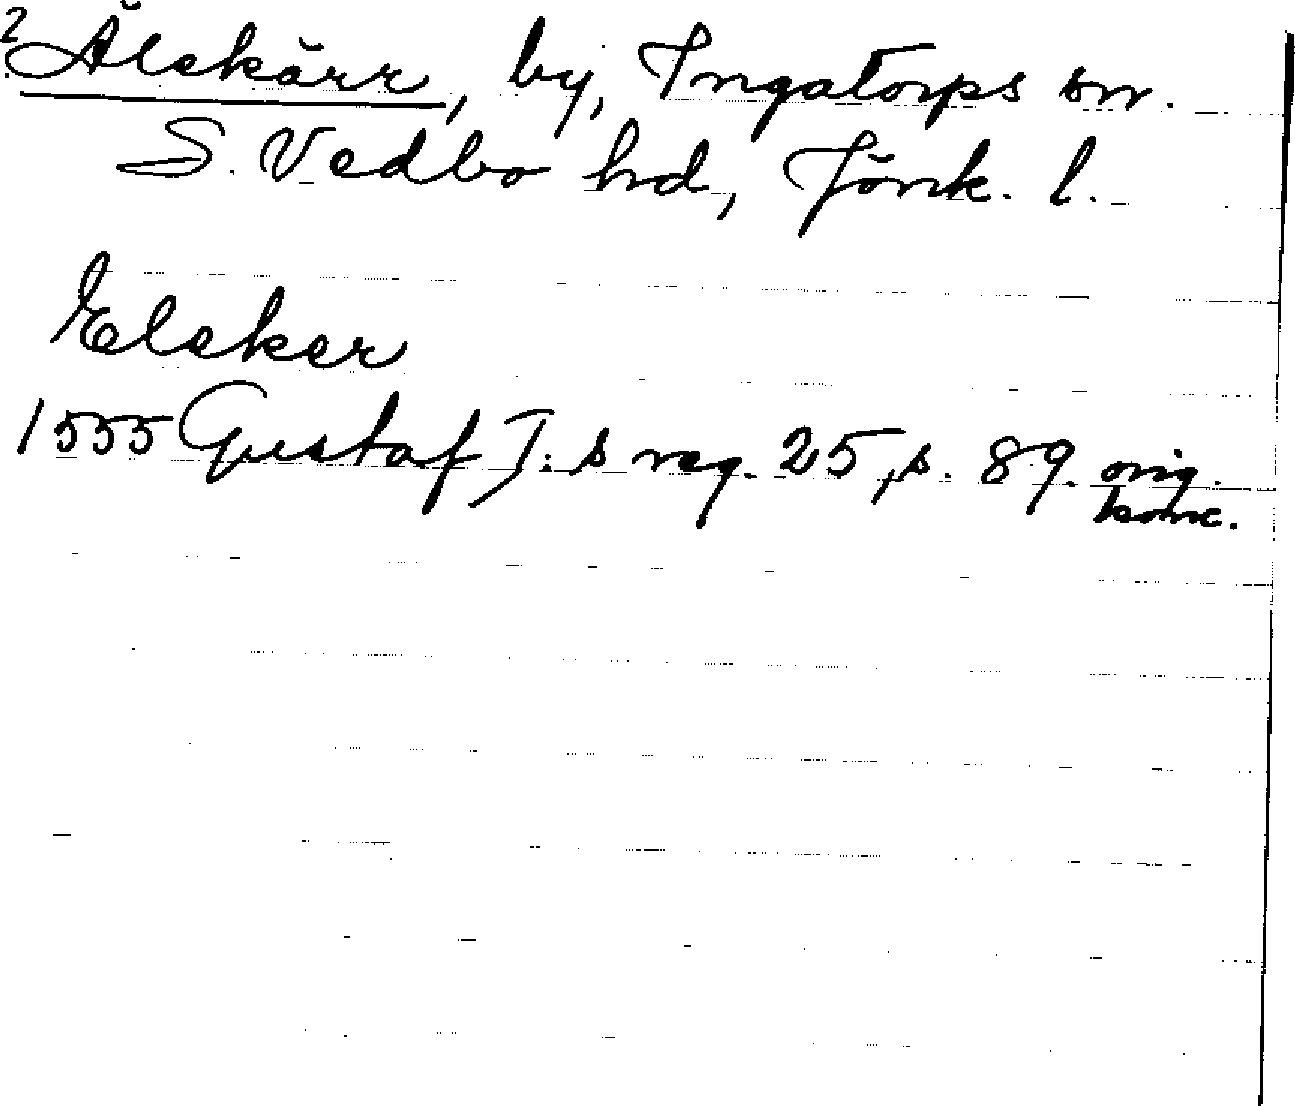 2 Älekärr, by, Ingatorps sn.
S. Vedbo hd, Jönk. l.
Eleker
1555 Gustaf I:s reg. 25, s. 89. orig.
konc.